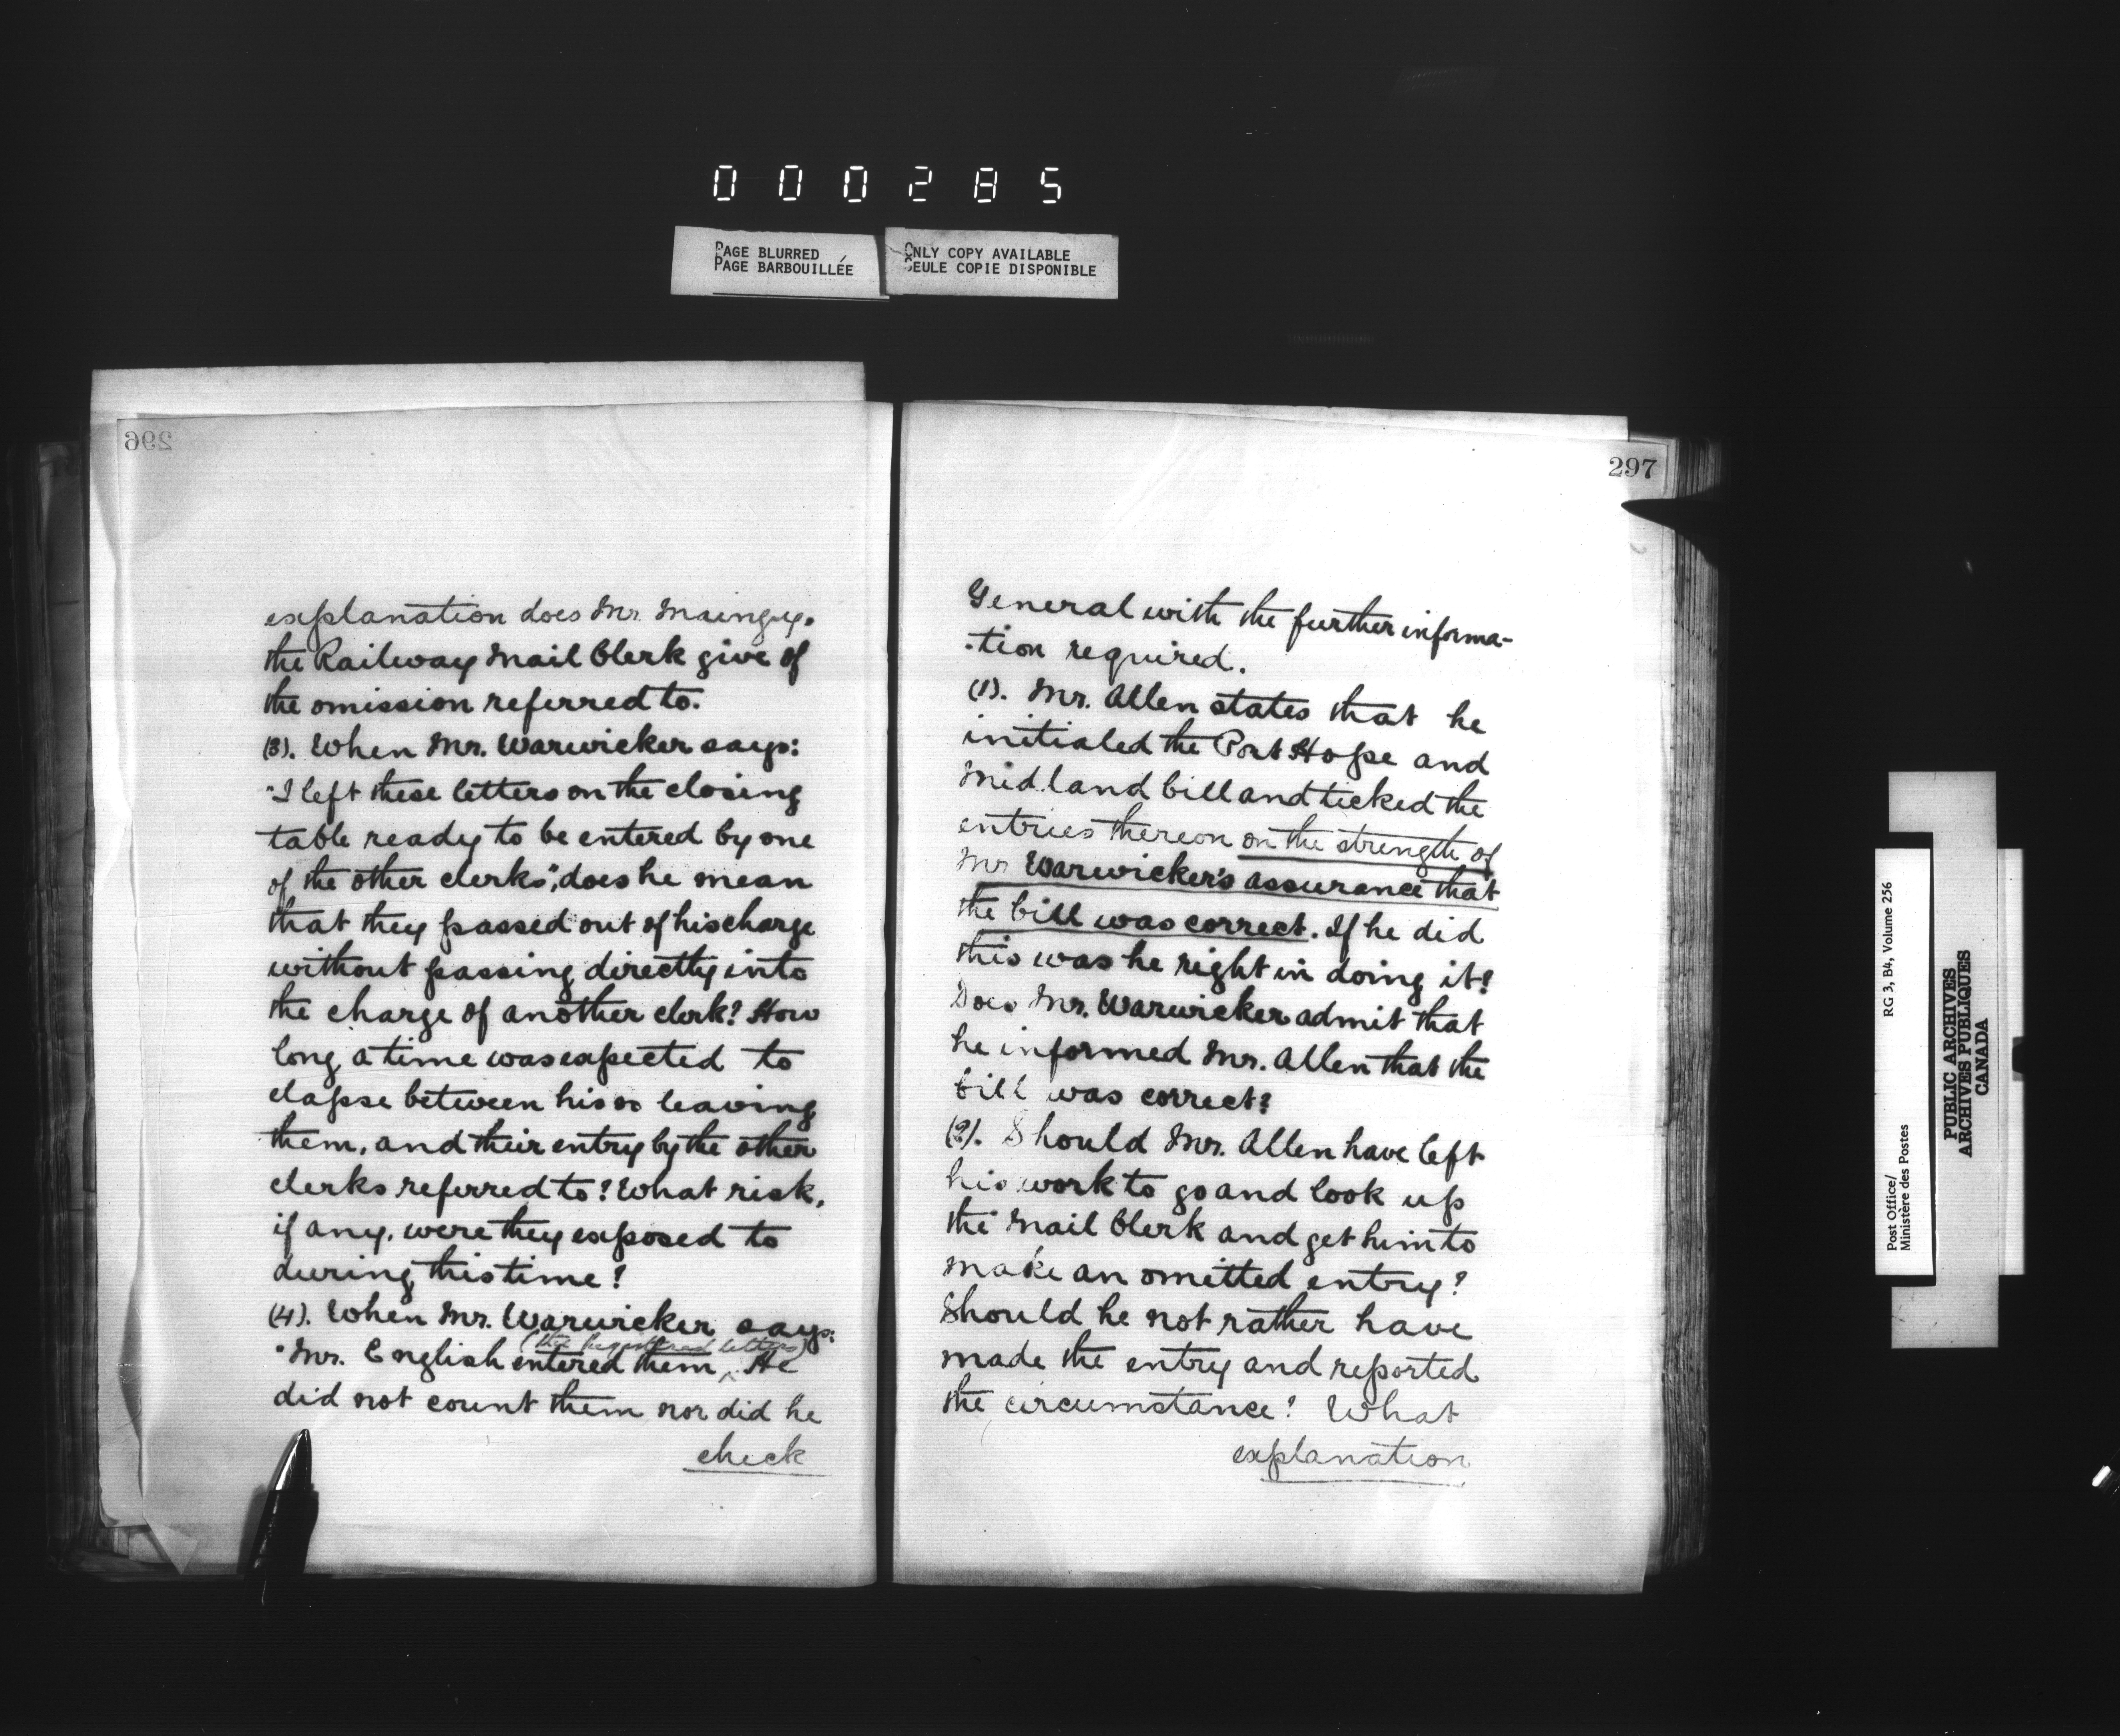 000285
PAGE BLURRED
PAGE BARBOUILLÉE
ONLY COPY AVAILABLE
SEULE COPIE DISPONIBLE
296
explanation does Mr. Mainguy.
the Railway Mail Clerk give of
the omission referred to.
(3). When Mr. Warwicker says:
"I left these letters on the closing
table ready to be entered by one
of the other clerks", does he mean
that they passed out of his charge
without passing directly into
the charge of another clerk? How
long a time was expected to
elapse between his so leaving
them, and their entry by the other
clerks referred to? What risk,
if any, were they exposed to
during this time?
(4). When Mr. Warwicker says:
(the registered letters)
"Mr. English entered them, He
did not count them nor did he
check
297
General with the further informa-
-tion required.
(1). Mr. Allen states that he
initialed the Port Hope and
Midland bill and ticked the
entries thereon on the strength of
Mr Warwicker's assurance that
the bill was correct. If he did
this was he right in doing it?
Does Mr. Warwicker admit that
he informed Mr. Allen that the
bill was correct?
(2). Should Mr. Allen have left
his work to go and look up
the Mail Clerk and get him to
make an omitted entry?
Should he not rather have
made the entry and reported
the circumstance? What
explanation
Post Office/
Ministère des Postes
RG 3, B4, Volume 256
PUBLIC ARCHIVES
ARCHIVES PUBLIQUES
CANADA